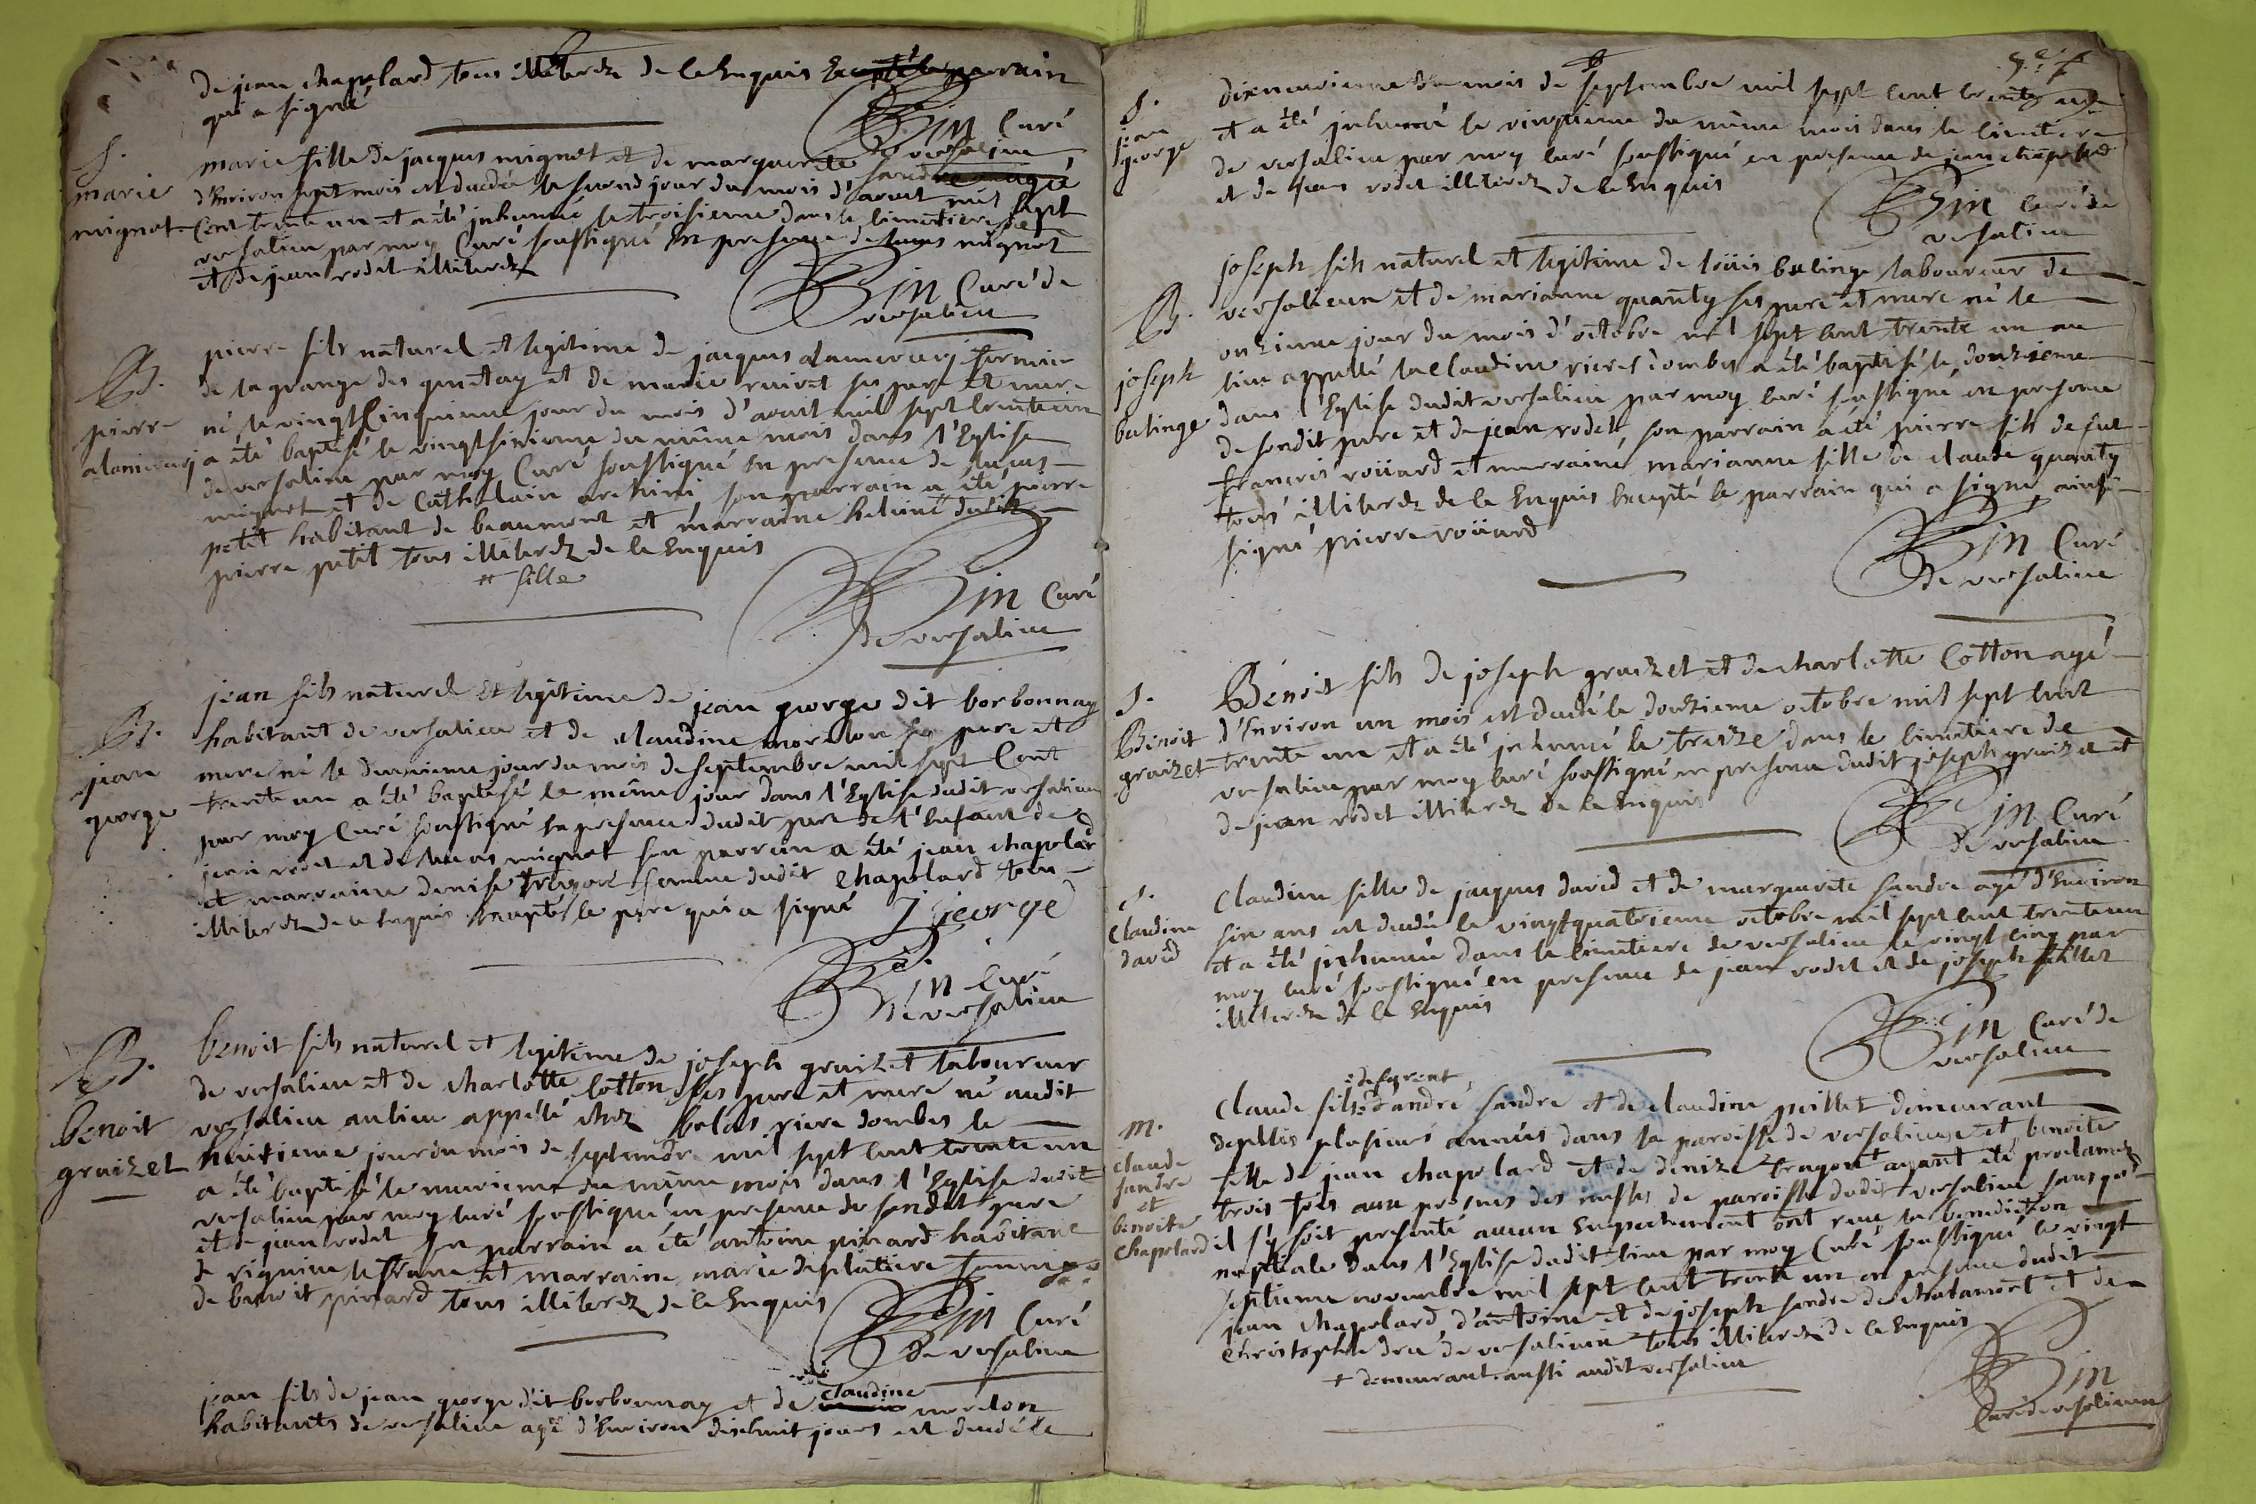 de jean chapolard tous illiterez de ce Enquis
qui a signé
Bin Curé
de versalieu
S.
marie
mignot
marie fille de jacques mignot et de marguerite sandre
d'Environ sept mois est decedée le second jour du mois d'aout mil sept
Cent trente un et a été inhumée le troisieme dans le cimetiere de
versalieu par moy Curé soussigné En presence de mignot
et de jean rodet illiterez
Bin Curé de
versalieu
B.
pierre
alamercery
pierre fils naturel et legitime de jacques alamercery fermier
de la grange des quintay et de marie ruivet ses pere et mere
né le vingt Cinquieme jour du mois d'aout mil sept trente un
a été baptisé le vingt sixieme du même mois dans l'Eglise
de versalieu par moy Curé soussigné En presence de
mignot et de Cathelain son parrain a été pierre
petit habitant de beaumont et marraine helaine dudit
pierre petit tous illiterez de ce Enquis
# fille
Bin Curé
de versalieu
B.
jean
george
jean fils naturel et legitime de jean george dit borbonnay
habitant de versalieu et de claudine morelon ses pere et
mere né le deuxieme jour du mois de septembre mil sept Cent
trente un a été baptisé le même jour dans l'Eglise dudit versalieu
par moy Curé soussigné En presence dudit pere de l'Enfant de
jean rodet et de mignot son parrain a été jean chapolard
et marraine denise femme dudit chapolard tous
illiterez de ce Enquis Excepté le pere qui a signé J George
Bin Curé
de versalieu
B.
benoit
gruizet
benoit fils naturel et legitime de joseph gruizet laboureur
de versalieu et de charlotte Cotton ses pere et mere né audit
versalieu au lieu appellé chez belas riere dombes le
huitieme jour du mois de septembre mil sept cent trente un
a été baptisé le neuvieme du même mois dans l'Eglise dudit
versalieu par moy curé soussigné en presence de sondit pere
et jean rodet son parrain a été antoine pivard habitant
de rignieu le franc et marraine marie deplatiere femme
de benoit pivard tous illiterez de ce Enquis
Bin Curé
de versalieu
jean fils de jean george dit borbonnay et de claudine morelon
habitants de versalieu agé d'Environ dixhuit jours est decedé le
S.
jean
george
dixneuvieme du mois de septembre mil sept cent trente un
et a été inhumé le vingtieme du même mois dans le cimetiere
de versalieu par moy curé soussigné en presence de jean chapolard
et de jean rodet illiterez de ce Enquis
Bin curé de
versalieu
B.
joseph
balinge
joseph fils naturel et legitime de loüis balinge laboureur de
versalieu et de marianne quanty ses pere et mere né le
onzieme jour du mois d'octobre mil sept cent trente un au
lieu appellé la claudine riere dombes a été baptisé le douzieme
dans l'Eglise dudit versalieu par moy curé soussigné en presence
de sondit pere et de jean rodet, son parrain a été pierre fils de feu
francois roüard et marraine marianne fille de claude quanty
tous illiterez de ce Enquis Excepté le parrain qui a signé ainsi
signé pierre roüard
Bin Curé
de versalieu
S.
Benoit
gruizet
Benoit fils de joseph gruizet et de charlotte Cotton agé
d'Environ un mois est decedé le douzieme octobre mil sept cent
trente un et a été inhumé le treize dans le cimetiere de
versalieu par moy curé soussigné en presence dudit joseph gruizet et
de jean rodet illiterez de ce Enquis
Bin Curé
de versalieu
S.
Claudine
david
Claudine fille de jacques david et de marguerite sandre agé d'Environ
six ans est decedée le vingt quatrieme octobre mil sept cent trente un
et a été inhumée dans le cimetiere de versalieu le vingt cinq par
moy curé soussigné en presence de jean rodet et de joseph
illiterez de ce Enquis
Bin Curé de
versalieu
M.
Claude
sandre
et
benoite
Chapolard
Claude fils d'andré sandre et de claudine peillet demeurant
depuis plusieurs années dans la paroisse de versalieu et benoite
fille de jean chapolard et de denize ayant été proclamez
trois fois aux prosnes des messes de paroisse dudit versalieu sans que
il s'y soit presenté aucun Empechement ont reçu la benediction
nuptiale dans l'Eglise dudit lieu par moy Curé soussigné le vingt
septieme novembre mil sept cent trente un en presence dudit
jean chapolard d'antoine et de joseph sandre de chatamont et de
christophle de versalieu tous illiterez de ce Enquis
+ demeurant aussi audit versalieu
Bin
Curé de versalieu